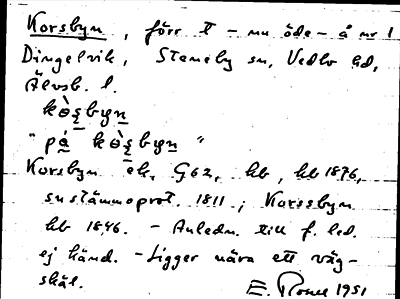 Korsbyn, förr t – nu öde – å nr 1
Dingelvik, Steneby sn, Vedbo hd,
Älvsb. l.
kòşbyn
"på kòşbyn"
Korsbyn ek. G62, kb, hb 1876,
sustämmoprot. 1811; Korssbyn
hb 1846. – Anledn. till f. led.
ej känd. – Ligger nära ett väg-
skäl.
E. 1951